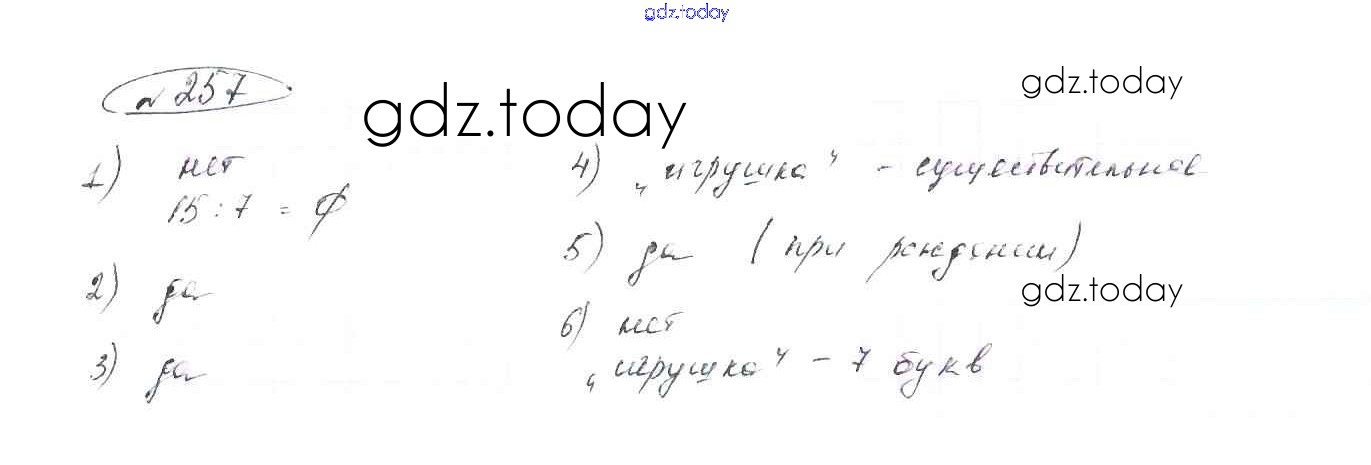 gdz.today
№ 257
gdz.today
gdz.today
1) нет
15 : 7 = ∅
2) да
3) да
4) „игрушка" - существительное
5) да (при рождении)
gdz.today
6) нет
„игрушка" - 7 букв